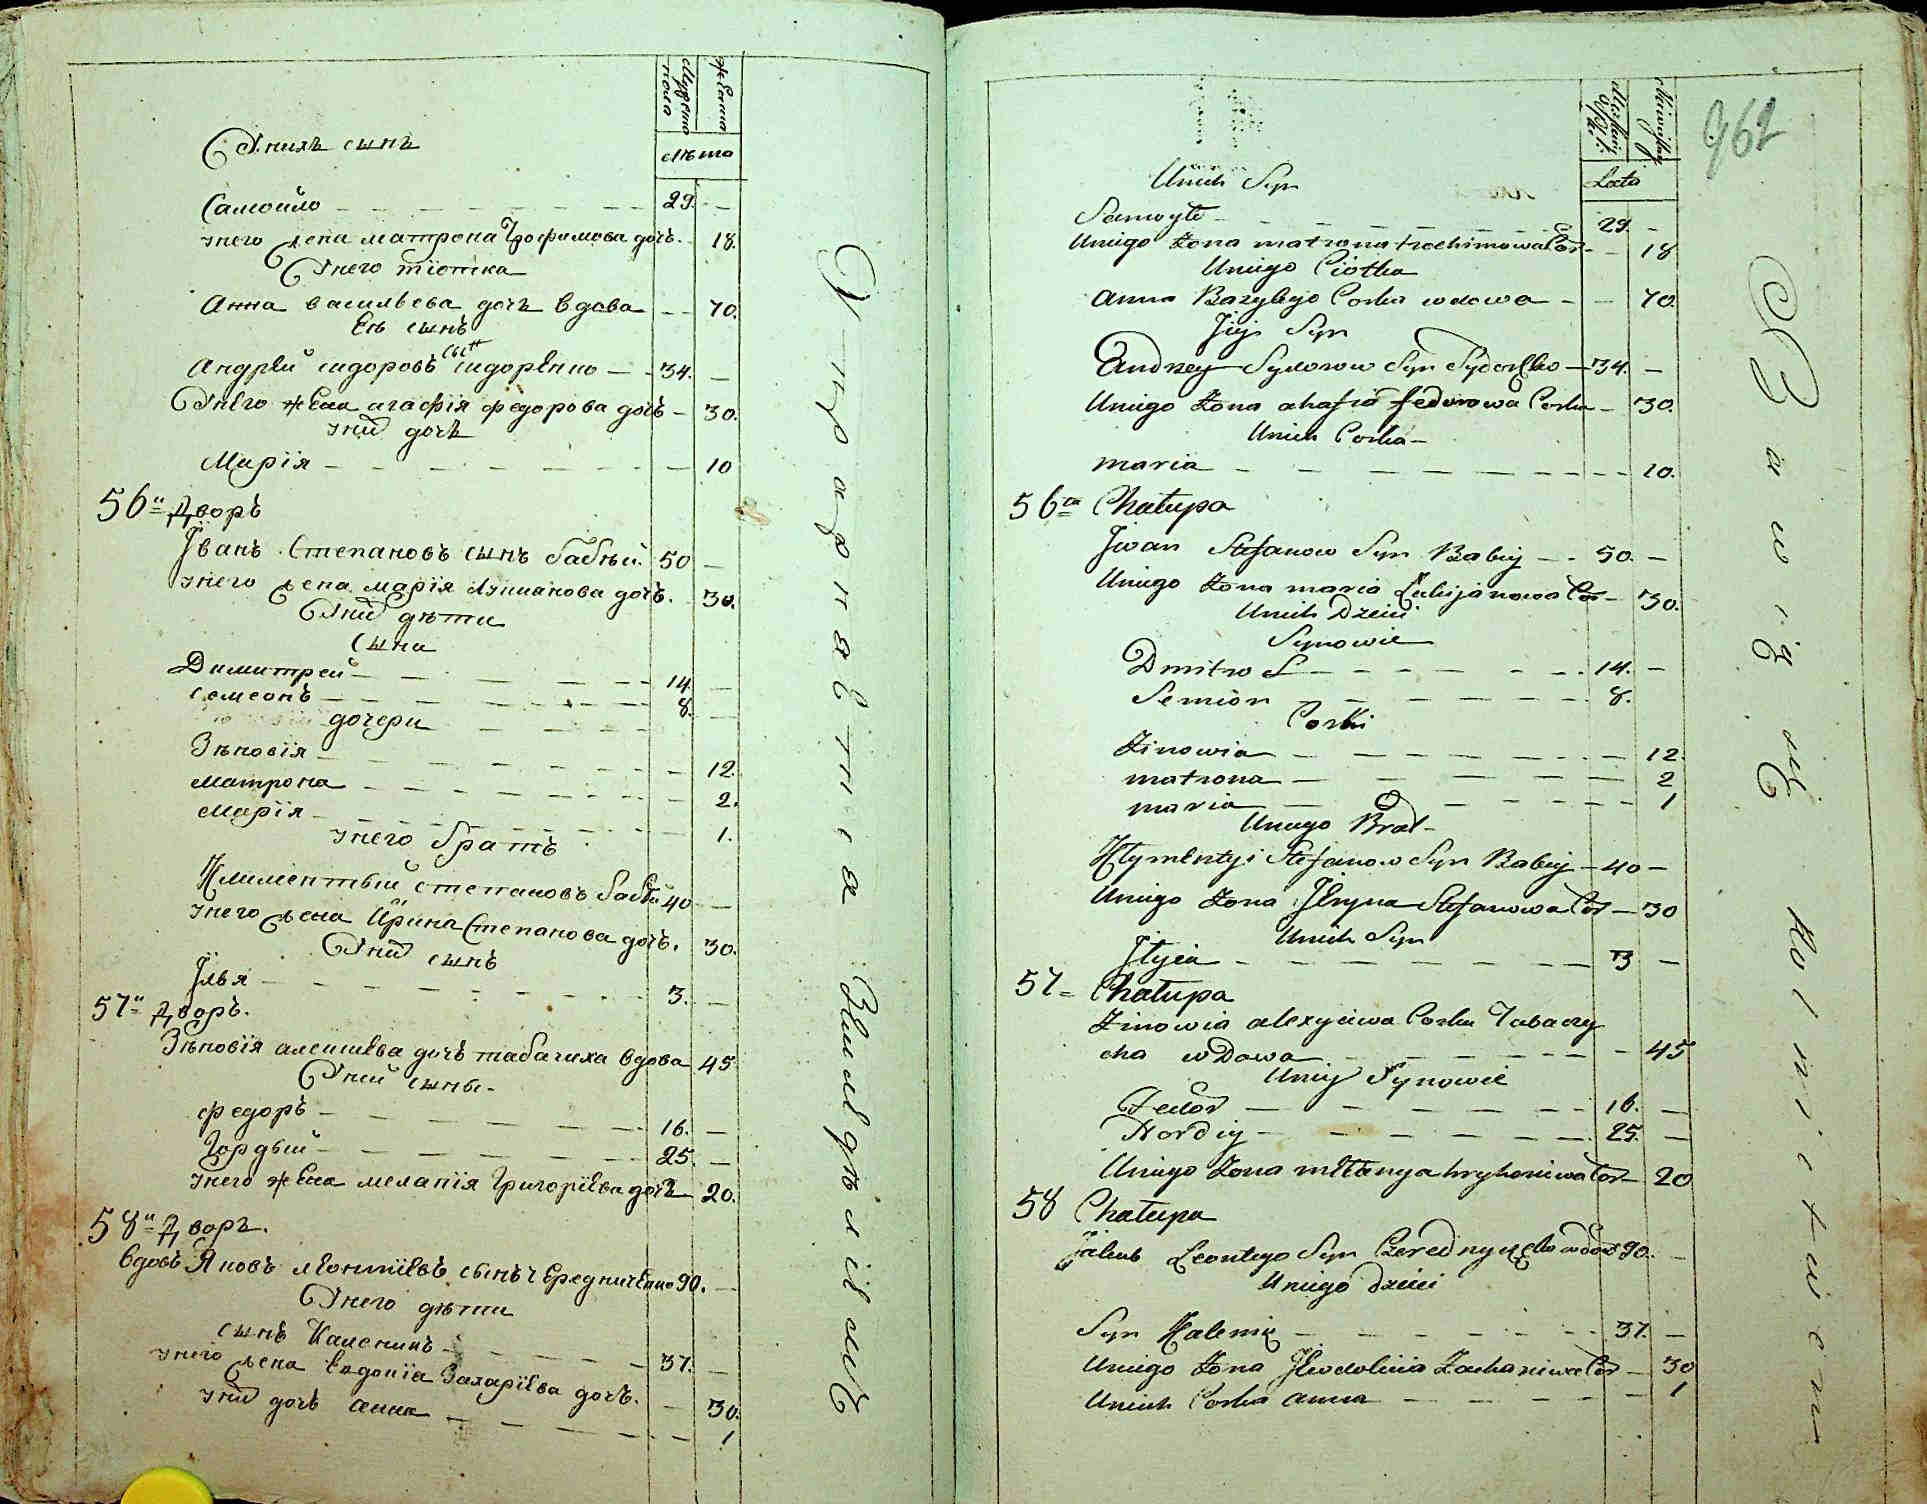 Мужеска пола
Женска
лѣта
У нихъ сынъ
Самойло 29.
унего жена матрона Трофимова дочъ. 18.
Унего тіотка
Анна василѣева дочъ вдова 70.
Еѣ сынъ
Андрей сидоровъ сынъ сидоренко 34.
Унего жена агафія федорова дочъ 30.
унихъ дочъ
Марія 10
56й дворъ
Іванъ Степановъ сынъ бабѣй. 50
унего жена марія Лукианова дочъ. 30.
Унихъ дѣти
сыни
Димитрей 14
семеонъ 8.
дочери
Зѣновія 12.
матрона 2.
марія 1.
унего братъ
Климентѣй степановъ бабѣй 40
унего жена Ирина Степанова дочъ. 30.
Унихъ сынъ
Ілья 3.
57й дворъ.
Зѣновія алексиева дочъ табачиха вдова 45
Уней сыны
федоръ 16.
Гордѣй 25.
унего жена меланія Григоріева дочъ 20.
58й дворъ.
вдовъ Яковъ леонтиевъ сынъ чередниченко 90.
Унего дѣти
сынъ Каленикъ 37.
унего жена Евдокіа Захаріева дочъ. 30.
унихъ дочъ анна 1
Земледѣліемъ
962
Lata
Unich Syn
Samoyło 29
Uniego Zona matrona trochimowa Cor 18
Uniego Ciotka
anna Bazylego Corka wdowa 70.
Jiey Syn
Andrzey Sydorow Syn Sydorenko 34.
Uniego Zona ahafia fedorowa Corka 30.
Unich Corka
maria 10.
56ta Chałupa
Jwan Stefanow Syn Babiy 50.
Uniego Zona maria Łukijanowa Cor 30.
Unich Dzieci
Synowie
Dmitro 14.
Semion 8.
Corki
Zinowia 12.
matrona 2
maria 1
Uniego Brat
Klymentyi Stefanow Syn Babiy 40
Uniego Zona Jryna Stefanowa Cor 30
Unich Syn
Jłyia 3
57 Chałupa
Zinowia alexyiewa Corka Tabaczy
cha wDowa 45
Uniey Synowie
Fedor 16.
Hordiy 25.
Uniego Zona mełanya hryhoriewa Cor 20
58 Chałupa
Jakub Leontego Syn Czerednyczenko wdow 90.
Uniego Dzieci
Syn Kalenik 37.
Uniego Zona Jewdokiia Zachariewa Cor 30
Unich Corka anna 1
Bawią się
Rolnictwem